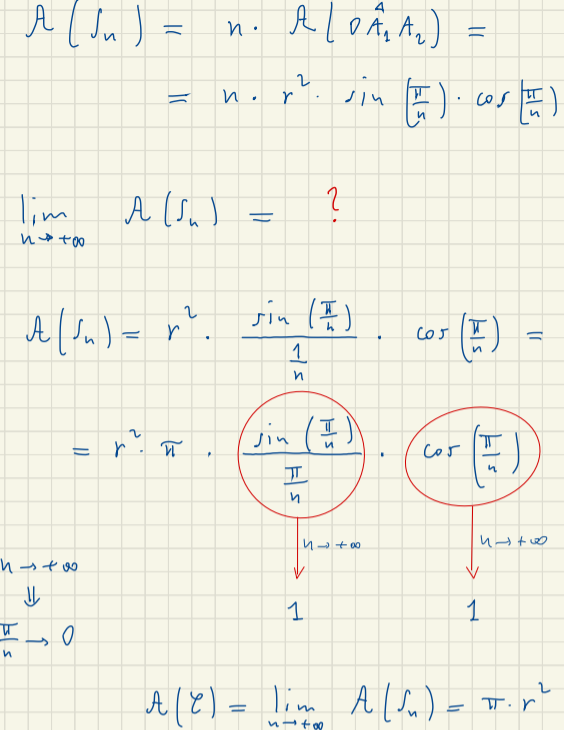 A(Sₙ) = n · A(OÂ₁A₂) =
= n · r² · sin(π/n) · cos(π/n)
lim n→+∞ A(Sₙ) = ?
A(Sₙ) = r² · sin(π/n) / (1/n) · cos(π/n) =
= r² · π · sin(π/n) / (π/n) · cos(π/n)
n→+∞ n→+∞
n→+∞
⇓
1 1
π/n → 0
A(𝒞) = lim n→+∞ A(Sₙ) = π · r²